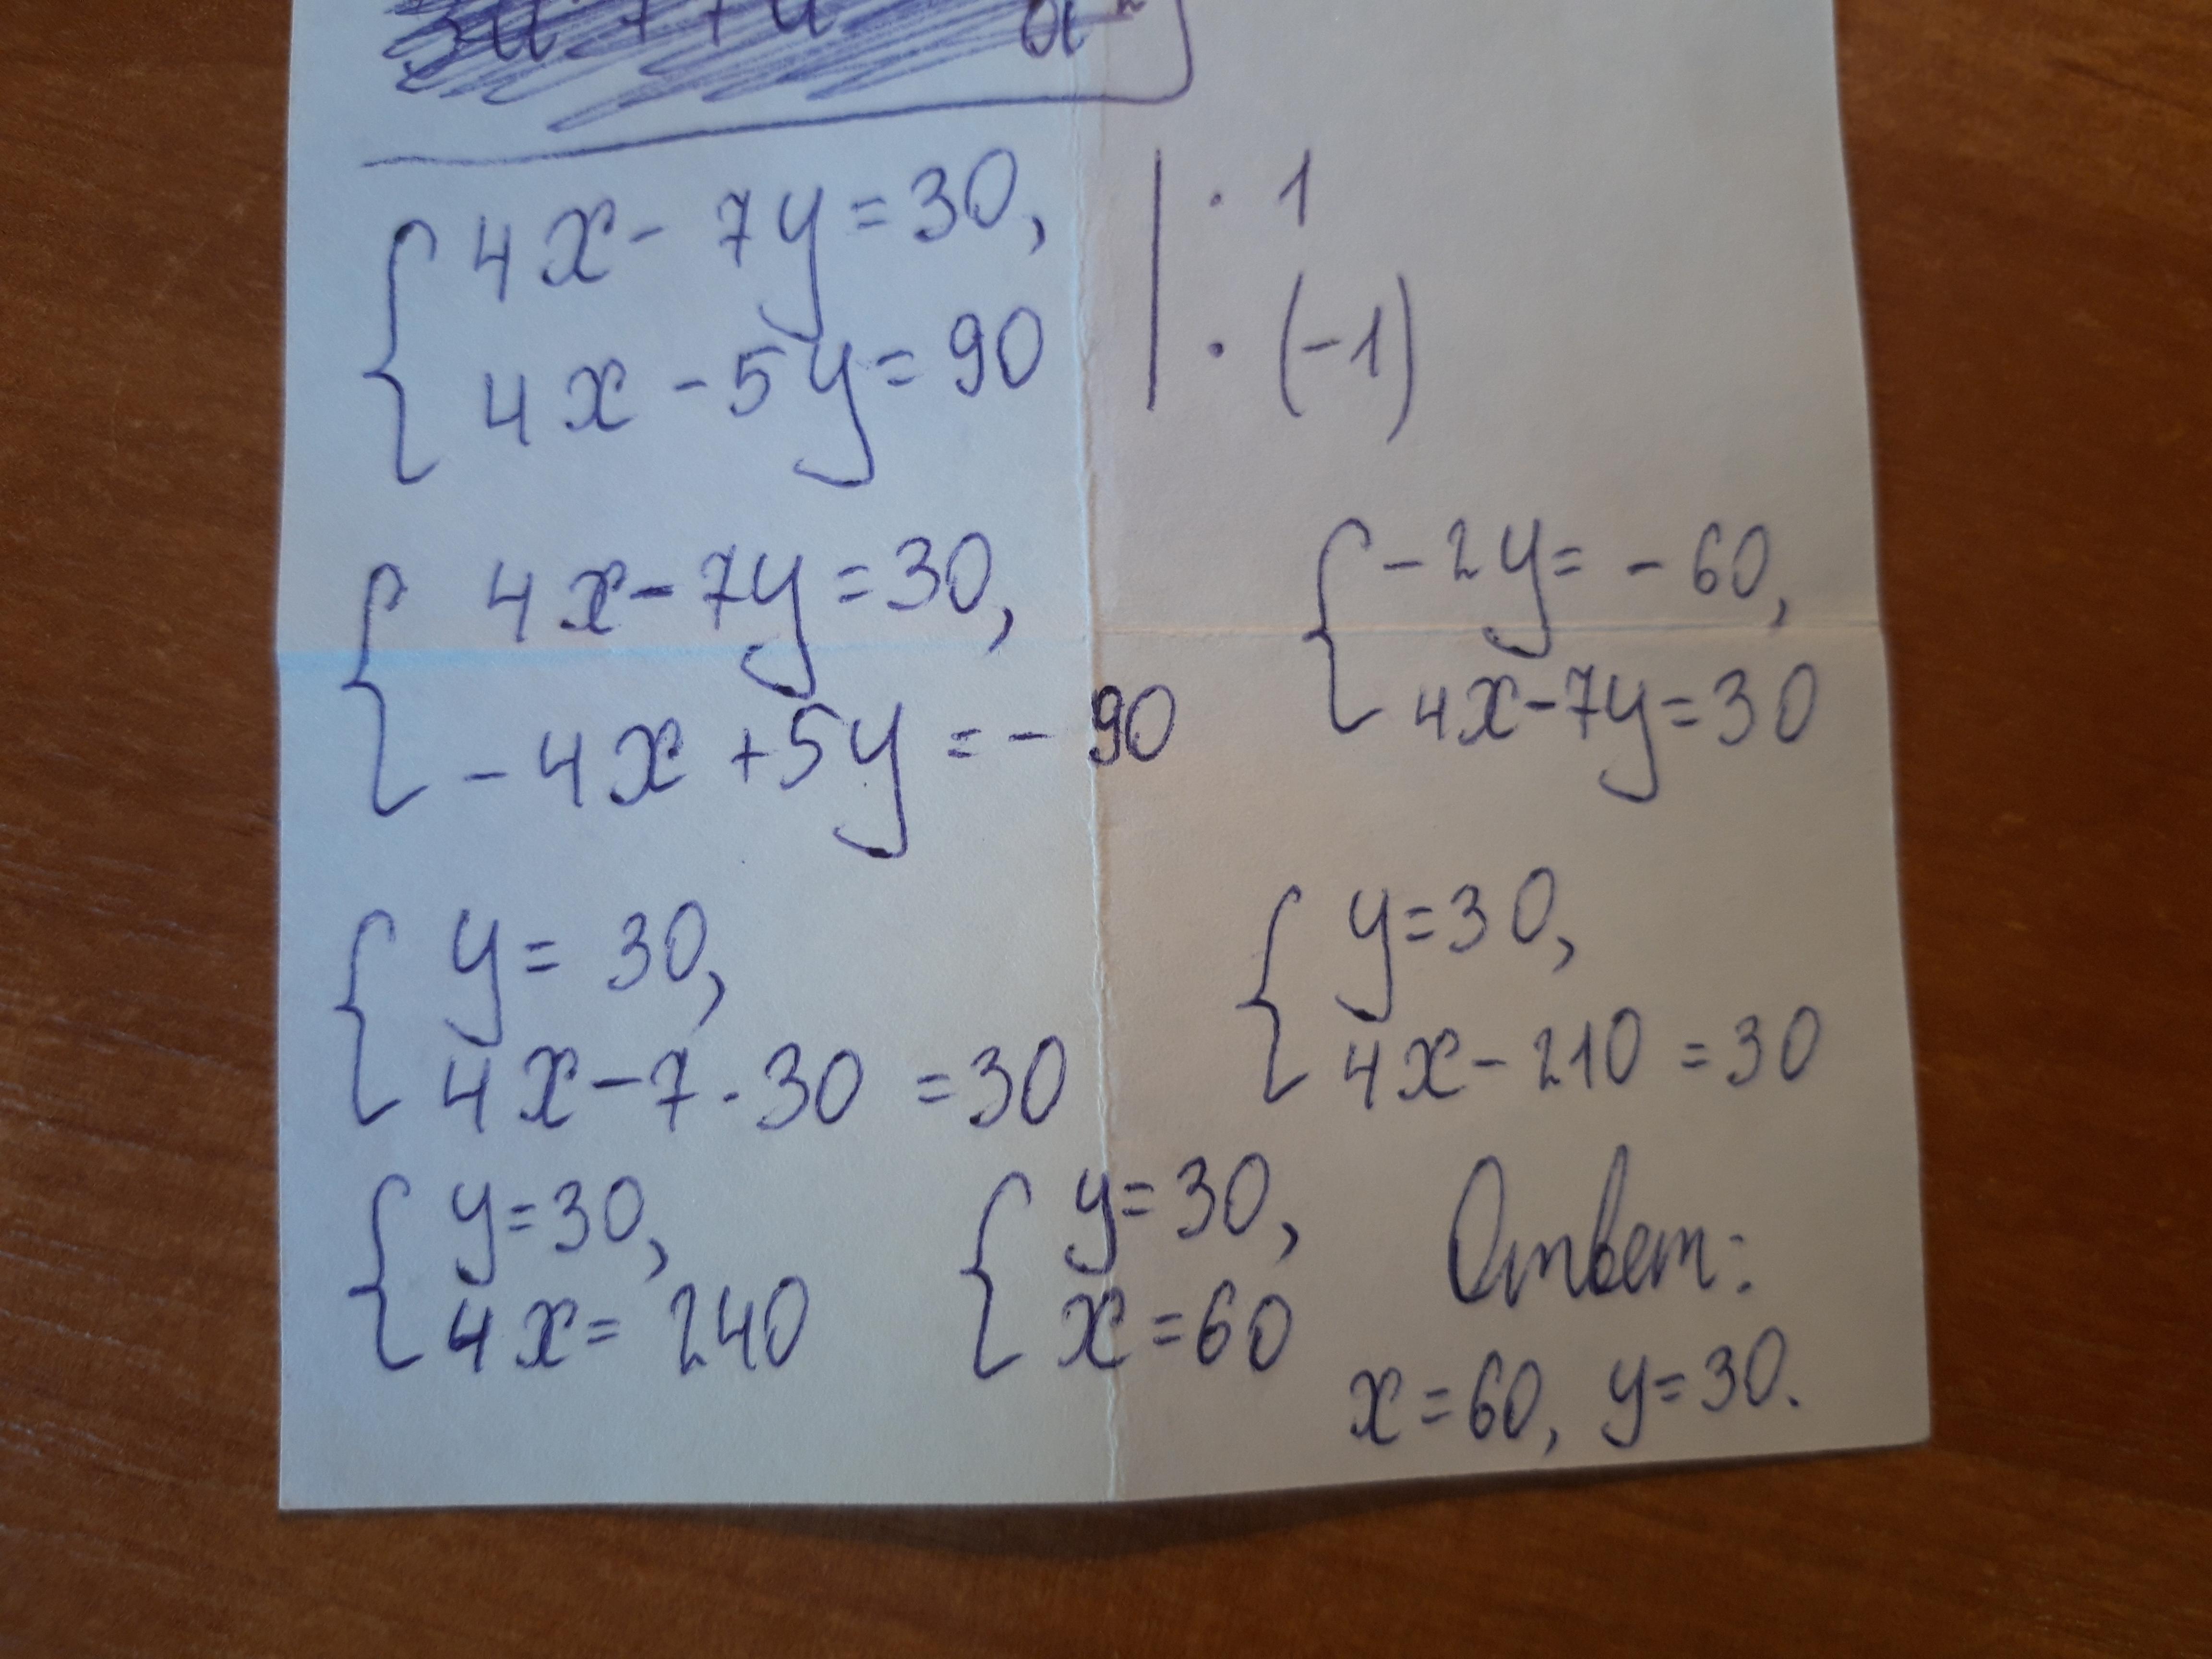 4x - 7y = 30, | · 1
4x - 5y = 90 | · (-1)
4x - 7y = 30,
-4x + 5y = - 90
-2y = - 60,
4x - 7y = 30
y = 30,
4x - 7 · 30 = 30
y = 30,
4x - 210 = 30
y = 30,
4x = 240
y = 30,
x = 60
Ответ:
x = 60, y = 30.